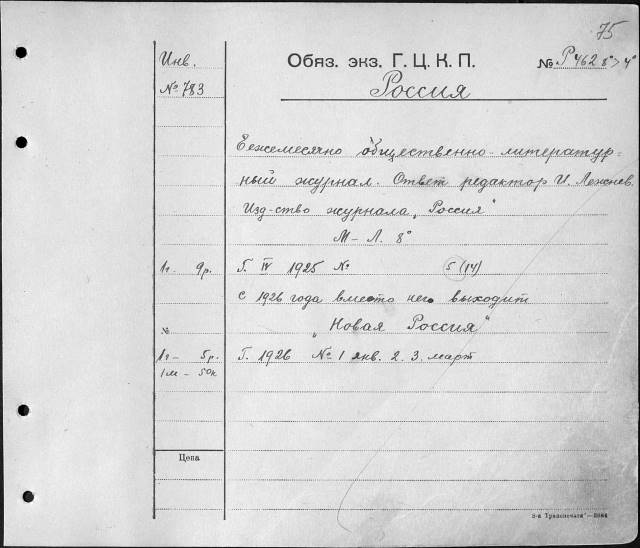 75
Инв.
№ 783
Обяз. экз. Г. Ц. К. П.
№ Р 462 8° > 4°
Россия
Еежемесячно общественно-литератур-
ный журнал. Ответ редактор И. Лежнев.
Изд-ство журнала „Россия"
М-Л. 8°
1г- 9р. Г. IV 1925 № 5 (14)
с 1926 года вместо него выходит
№ „Новая Россия"
1г- 5р. Г. 1926 № 1 янв. 2. 3. март
1м- 50к
Цена